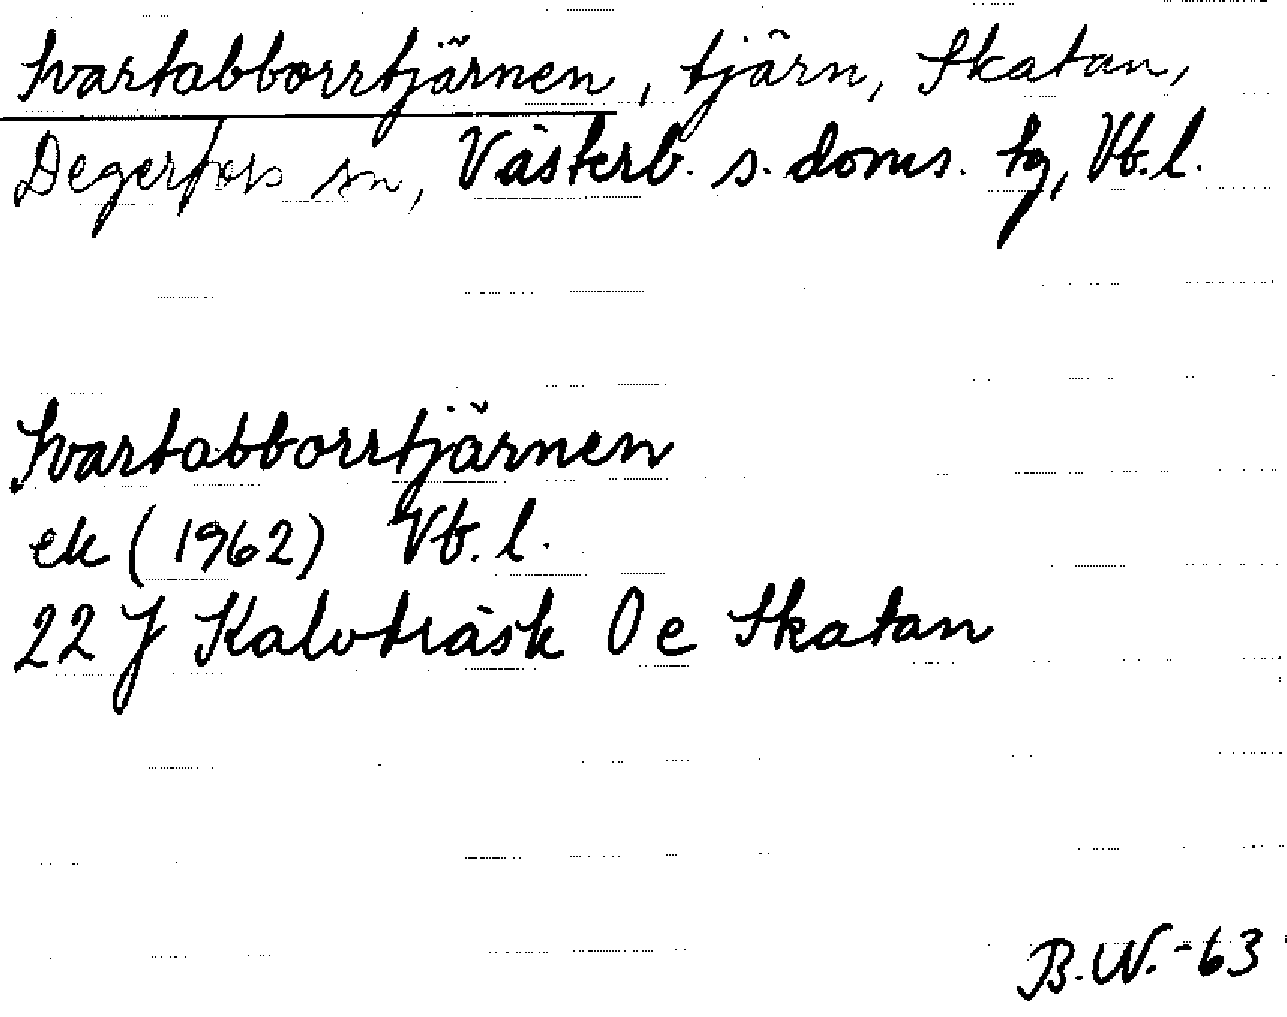 Svartabborrtjärnen, tjärn, Skatan,
Degerfors sn, Västerb. s. doms. tg, Vb. l.
Svartabborrtjärnen
ek (1962) Vb. l.
22 J Kalvträsk 0 e Skatan
B.W.-63